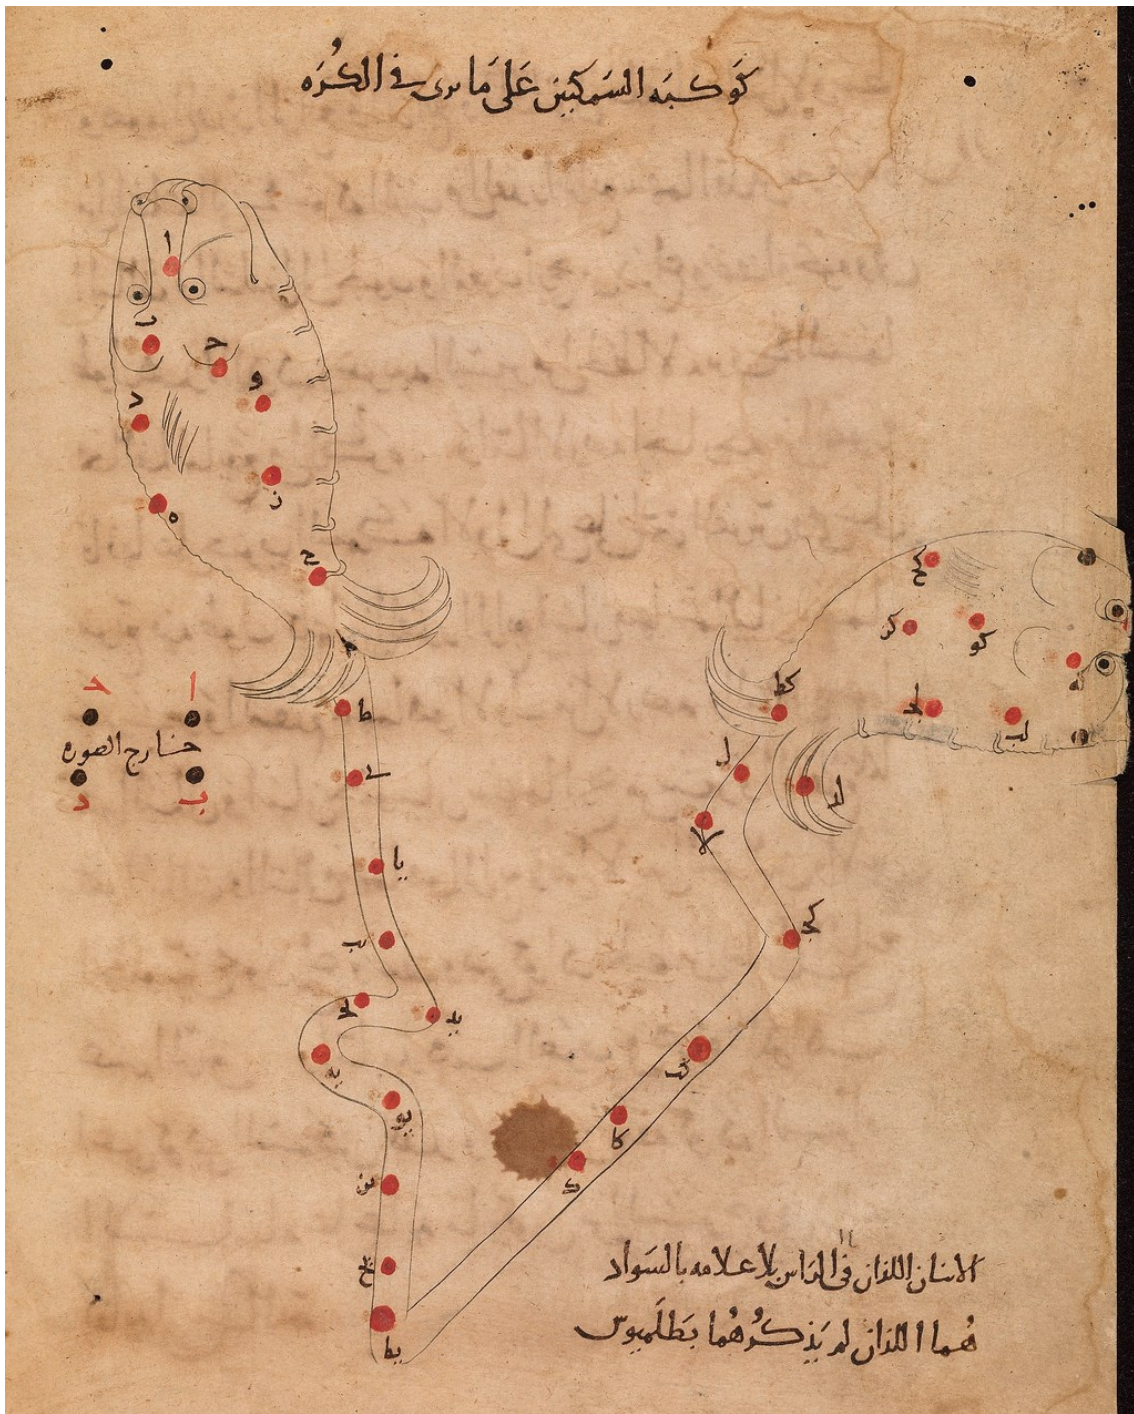 كَوكبَه السَمكَتين عَلى مَا يرى في الكُرَه
ا
ب
ح
و
د
ز
ه
ح
ط
ى
يا
يب
يج
يد
يه
يو
يز
يح
يط
ك
كا
كب
كج
لا
ل
كط
كح
كز
كو
لج
لب
لد
ا
ح
خارج الصوره
ب
د
الاثنان اللذان في الراس بلا علامه بالسَواد
هُما اللذان لم يَذكرهُما بَطلَميوس